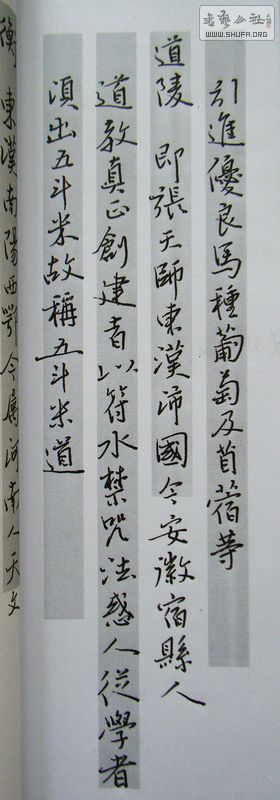 書艺公社
WWW.SHUFA.ORG
引進優良馬種葡萄及苜蓿等
道陵 即張天師東漢沛國今安徽宿縣人
道教真正創建者以符水禁咒法惑人從學者
須出五斗米故稱五斗米道
衡 東漢南陽西鄂今屬河南人天文